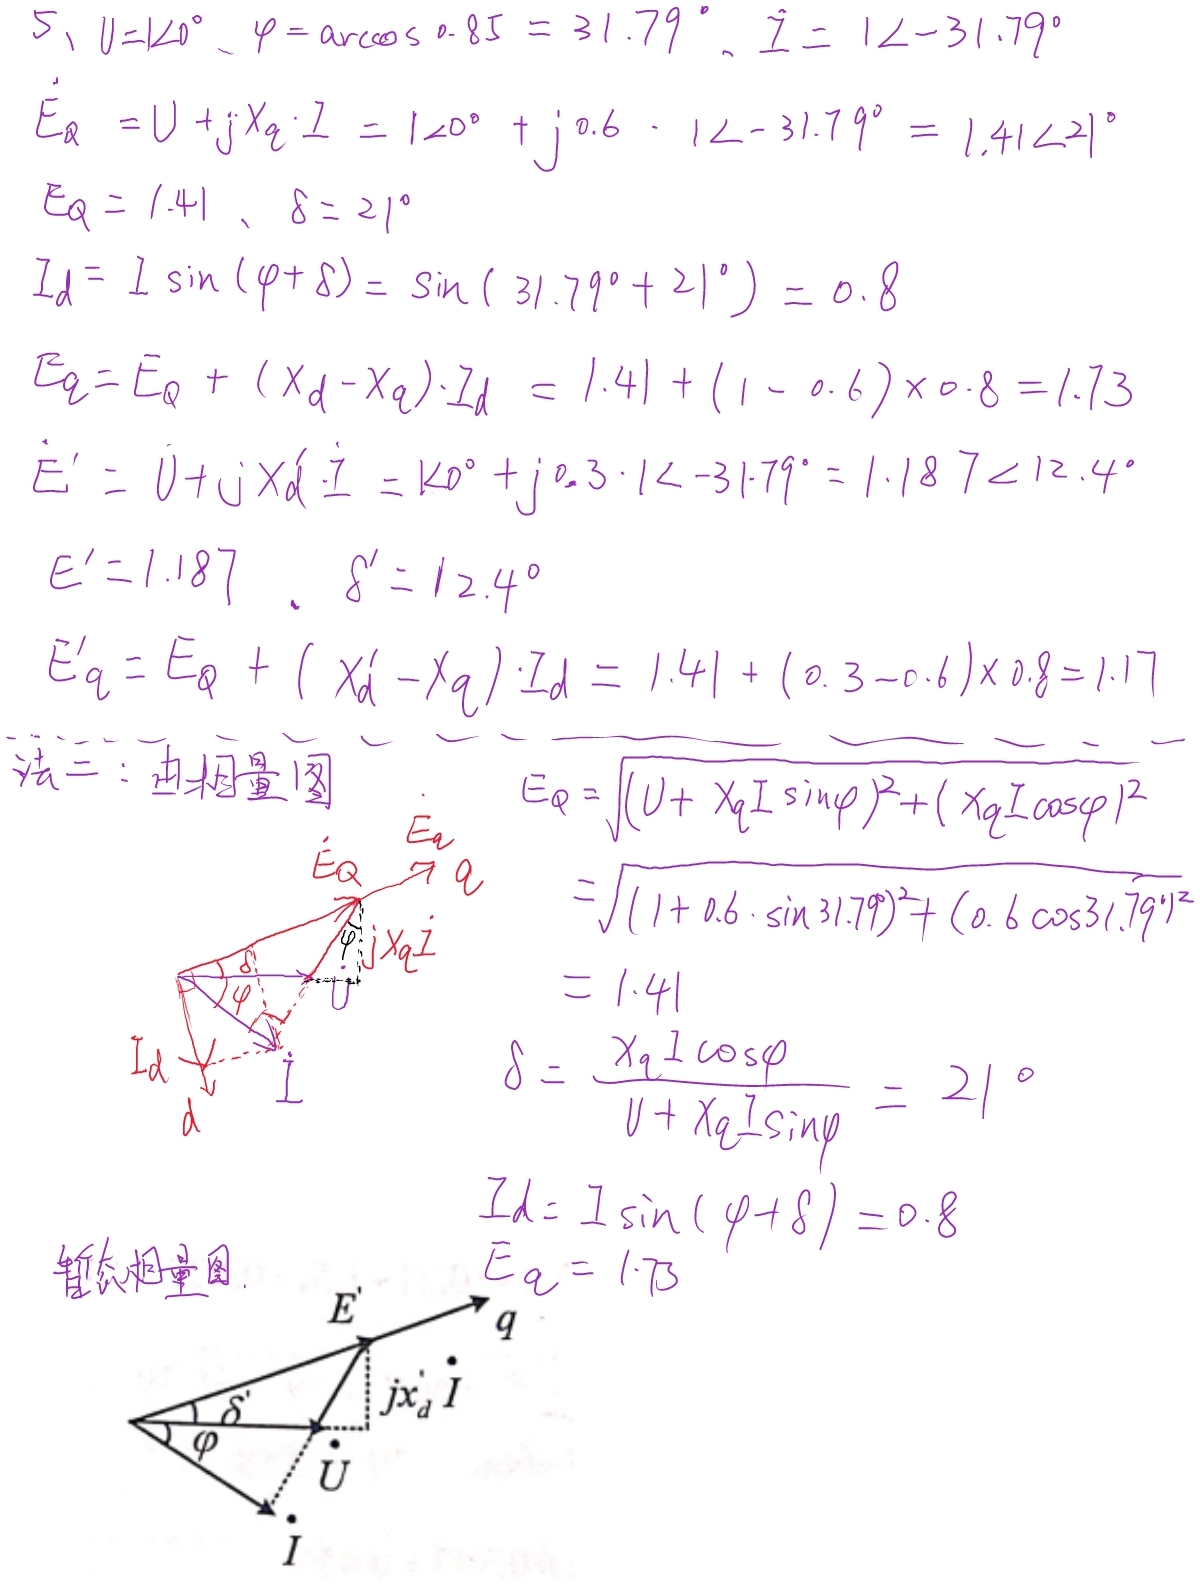 5、U=1∠0°、φ=arccos0.85=31.79°、İ=1∠-31.79°
Ė_Q=U+jX_q·I=1∠0°+j0.6·1∠-31.79°=1.41∠21°
E_Q=1.41、δ=21°
I_d=I sin(φ+δ)=sin(31.79°+21°)=0.8
E_q=E_Q+(X_d-X_q)·I_d=1.41+(1-0.6)×0.8=1.73
Ė'=U̇+jX'_d·İ=1∠0°+j0.3·1∠-31.79°=1.187∠12.4°
E'=1.187、δ'=12.4°
E'_q=E_Q+(X'_d-X_q)·I_d=1.41+(0.3-0.6)×0.8=1.17
法三:由相量图
E_Q=√((U+X_qI sinφ)²+(X_qI cosφ)²)
=√((1+0.6·sin31.79°)²+(0.6cos31.79°)²)
=1.41
δ=X_qIcosφ/(U+X_qIsinφ)=21°
I_d=I sin(φ+δ)=0.8
E_q=1.73
Ė_q
Ė_Q
q
φ
jX_qİ
δ
φ
U̇
I_d
İ
d
暂态相量图.
E'
q
jx'_d İ
δ'
φ
U̇
İ